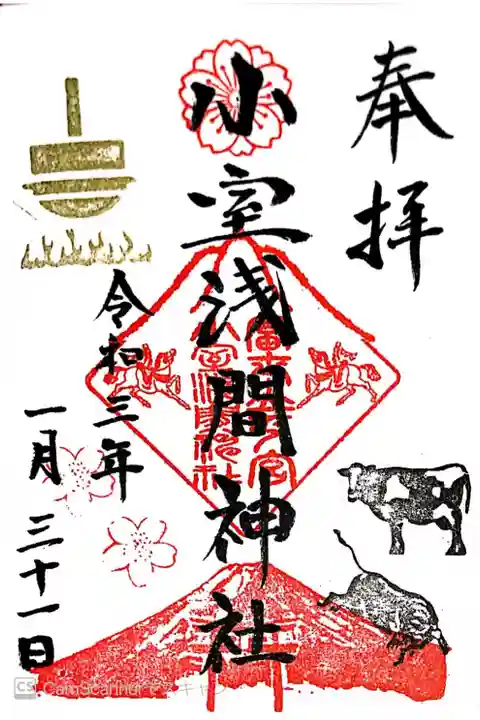 奉拝
小室浅間神社
令和三年
一月三十一日
CS CamScannerでスキャン